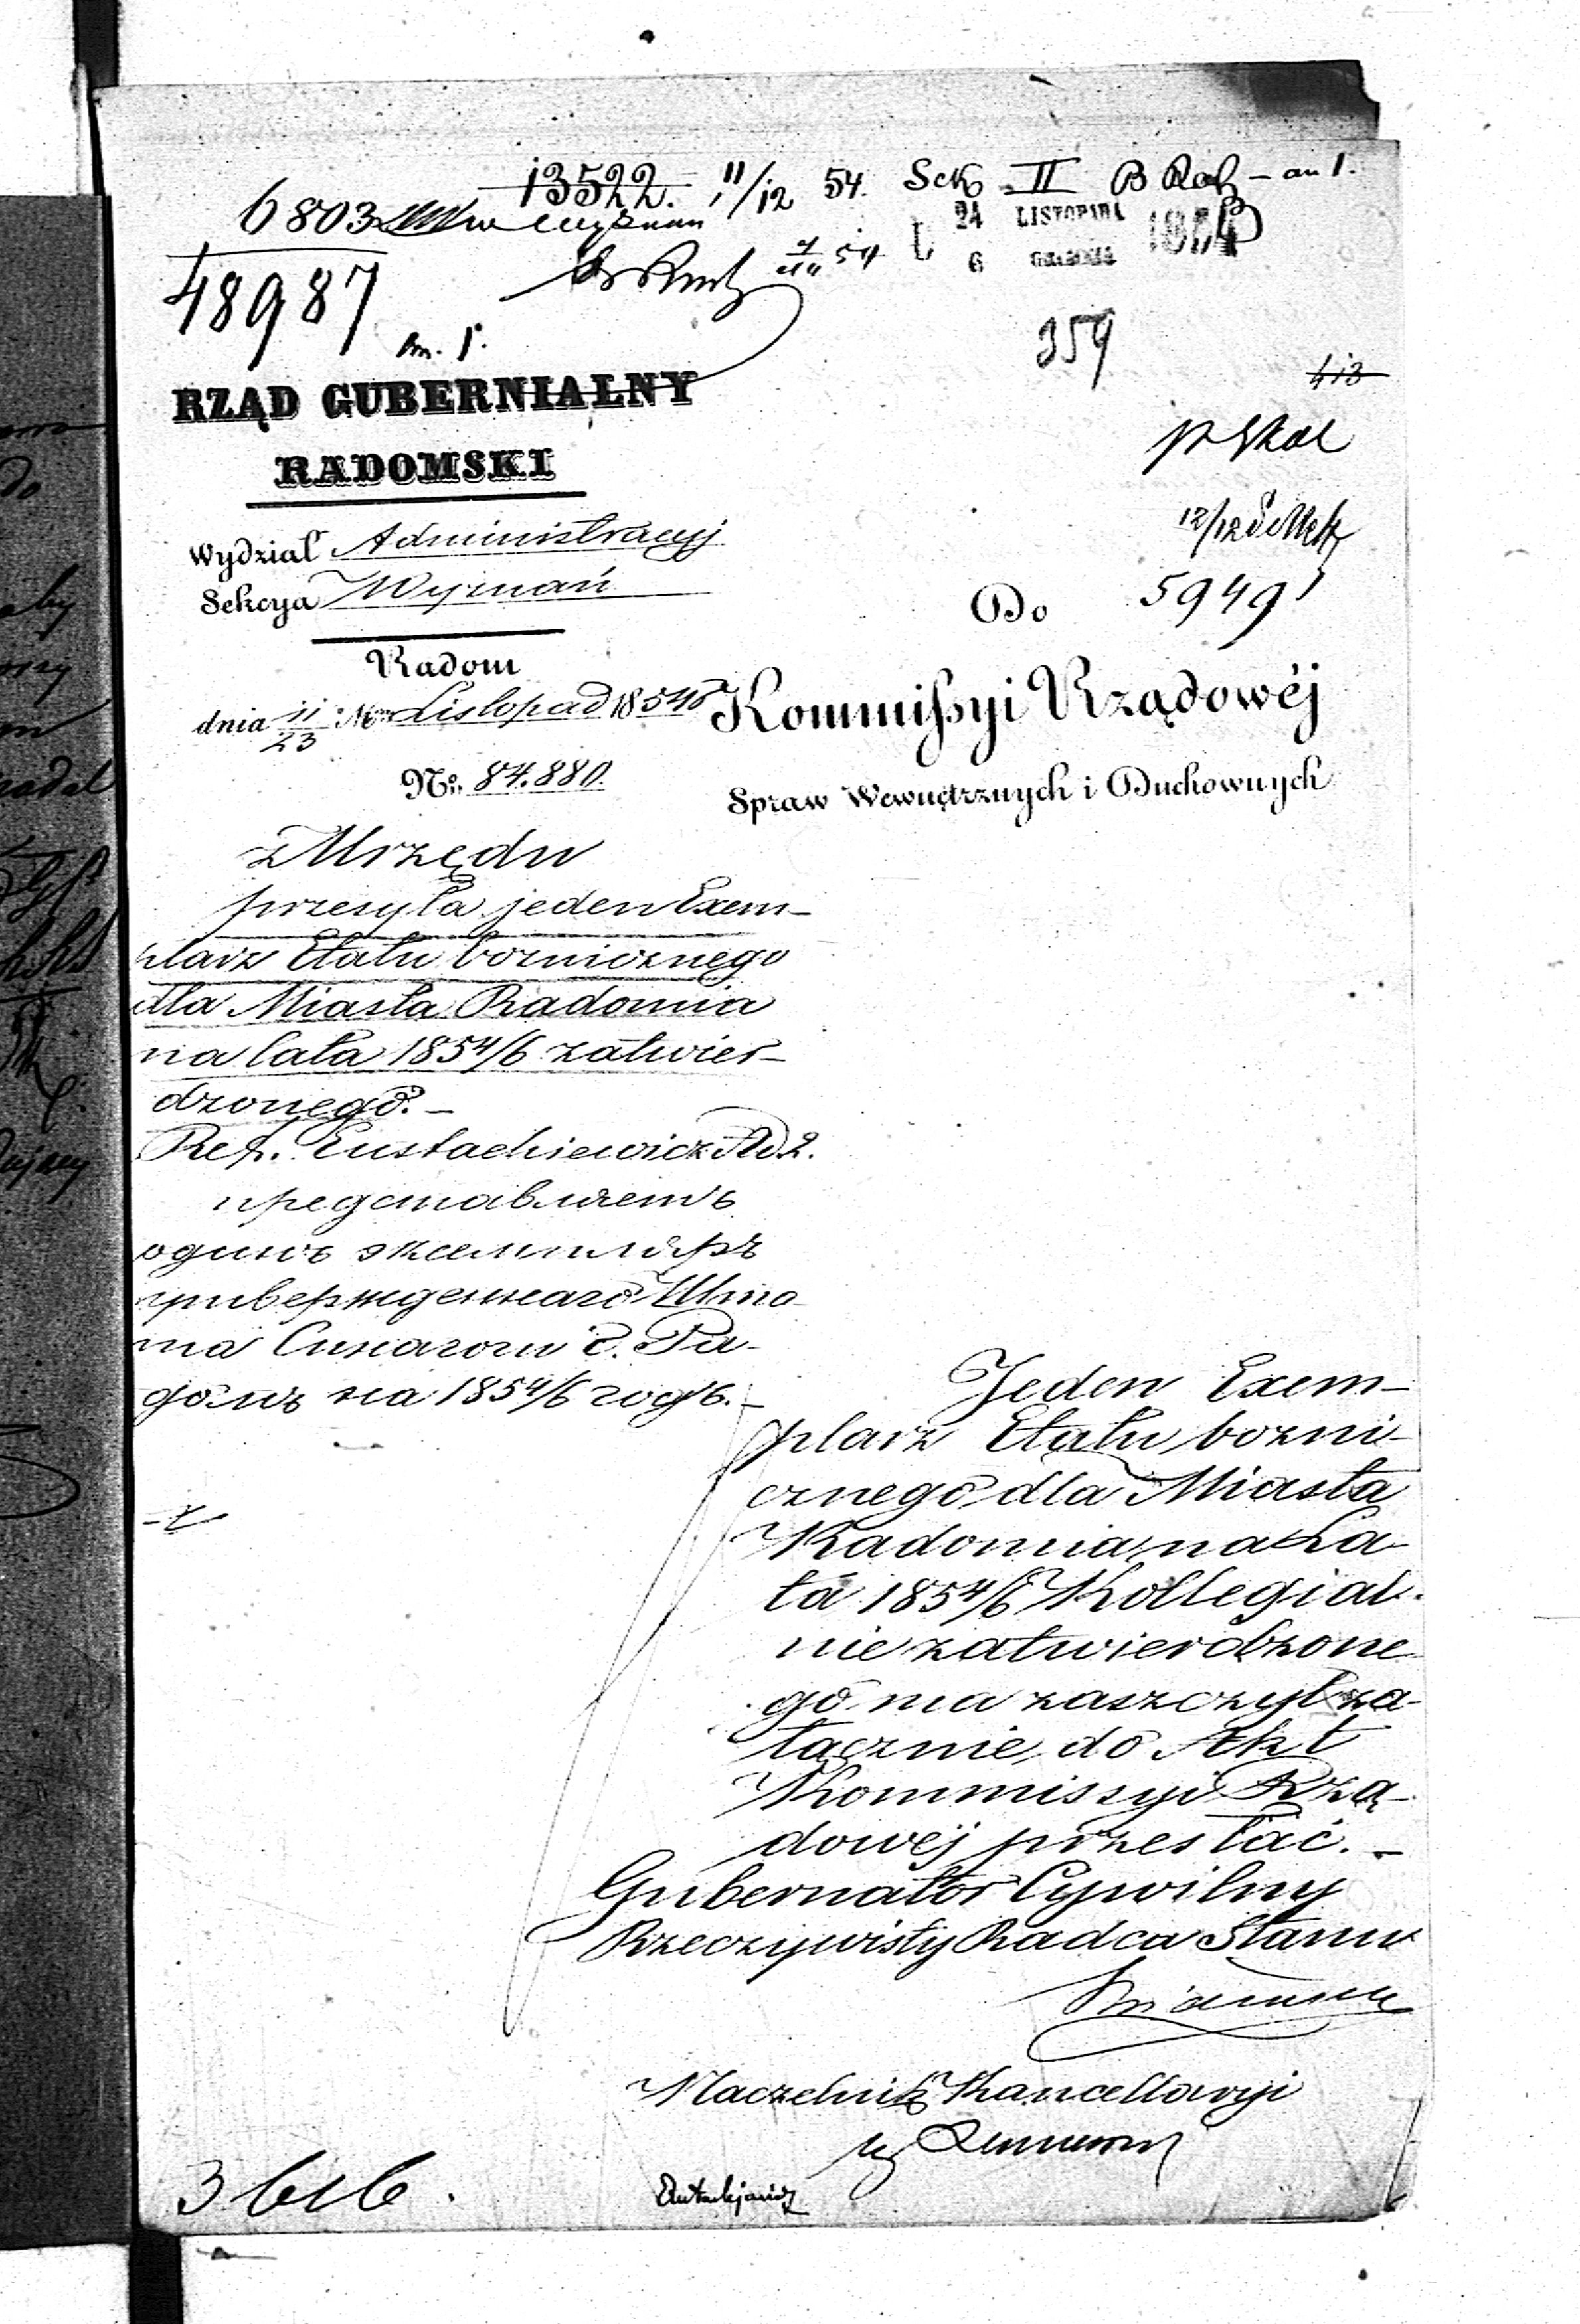 13522. 11/12 54. Sek II B Rad – an 1.
6803
24 LISTOPADA 1854
6 GRUDNIA
48987
an. 1.
359
413
RZĄD GUBERNIALNY
RADOMSKI
Wydział Administracyj
Sekcya Wyznań
Do
59491
Radom
dnia 11/23 Mca Listopad 1854 r
Kommissyi Rządowéj
No. 84.880.
Spraw Wewnętrznych i Duchownych
z Urzędu
przesyła jeden Exem-
plarz Etatu bożnicznego
dla Miasta Radomia
na lata 1854/6 zatwier-
dzonego. –
Ref. Eustachiewicz Ad 2.
представляетъ
одинъ экземпляръ
утвержденнаго Шта-
та Синагоги г. Ра-
домъ на 1854/6 годъ. –
Jeden Exem-
plarz Etatu bożni-
cznego dla Miasta
Radomia na La-
ta 1854/6 Kollegial-
nie zatwierdzone-
go ma zaszczyt za-
łącznie do Akt
Kommissyi Rzą-
dowéj przesłać. –
Gubernator Cywilny
Rzeczywisty Radca Stanu
Naczelnik Kancellaryi
3 bib.